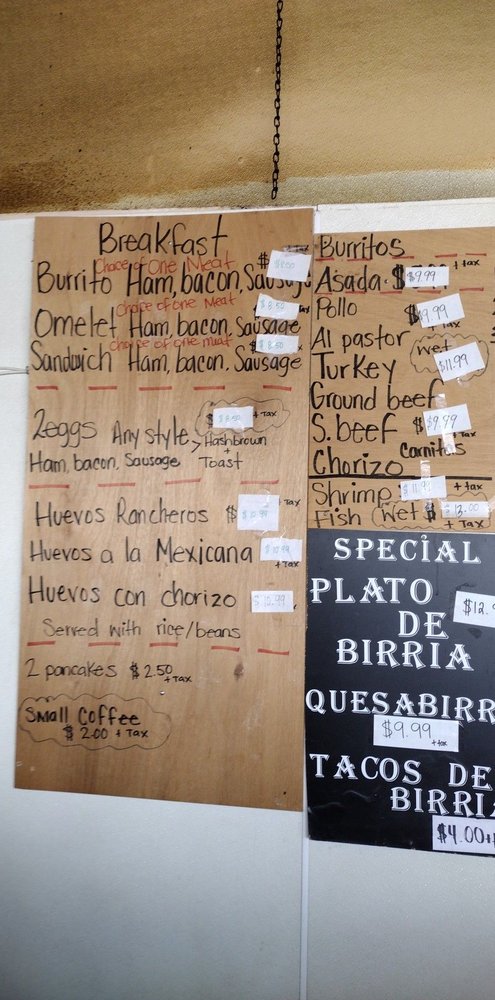 Breakfast
Choice of One Meat $ $8.00
Burrito Ham, bacon, Sausage
Choice of one Meat $8.50
Omelet Ham, bacon, Sausage
Choice of one meat $8.50
Sandwich Ham, bacon, Sausage
$ $8.50 + Tax
2eggs Any style > Hashbrown
+
Ham, bacon, Sausage Toast
Huevos Rancheros $ $10.99 + Tax
Huevos a la Mexicana $10.99
+ Tax
Huevos con chorizo $10.99
Served with rice/beans
2 pancakes $2.50
+ Tax
Small Coffee
$2.00 + Tax
Burritos
+ tax
Asada $ $9.99
Pollo $9.99
Tax
Al pastor Wet
Turkey $11.99
Ground beef
S. beef $9.99
Carnitas
Chorizo
Shrimp $11.99 + tax
Fish (Wet $ $13.00
+ Tax
SPECIAL
PLATO $12.
DE
BIRRIA
QUESABIRR
$9.99
+ tax
TACOS DE
BIRRI
$4.00+